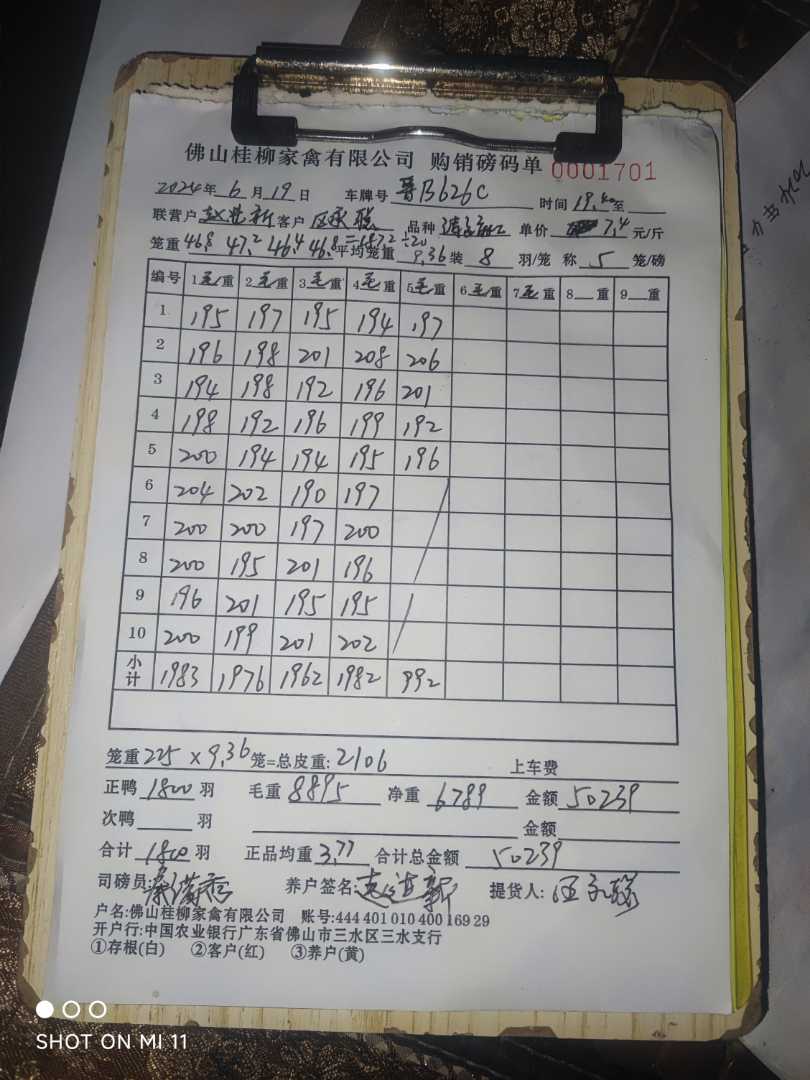 佛山桂柳家禽有限公司 购销磅码单 0001701
2024年6月19日 车牌号 B626C 时间 19.40至
联营户 客户 品种 单价 7.4元/斤
笼重46.8 47.2 46.4 46.8=187.2÷20 平均笼重9.36装8羽/笼 称5笼/磅
编号 1毛/重 2毛/重 3毛/重 4毛/重 5毛/重 6毛/重 7毛重 8重 9重
1 195 197 195 194 197
2 196 198 201 208 206
3 194 198 192 196 201
4 198 192 196 199 192
5 200 194 194 195 196
6 204 202 190 197
7 200 200 197 200
8 200 195 201 196
9 196 201 195 195
10 200 199 201 202
小计 1983 1976 1962 1982 992
笼重225×9.36笼=总皮重:2106 上车费
正鸭1800羽 毛重8895 净重6789 金额50239
次鸭 羽 金额
合计1800羽 正品均重3.77 合计总金额50239
司磅员: 养户签名: 提货人:
户名:佛山桂柳家禽有限公司 账号:444 401 010 400 169 29
开户行:中国农业银行广东省佛山市三水区三水支行
①存根(白) ②客户(红) ③养户(黄)
SHOT ON MI 11